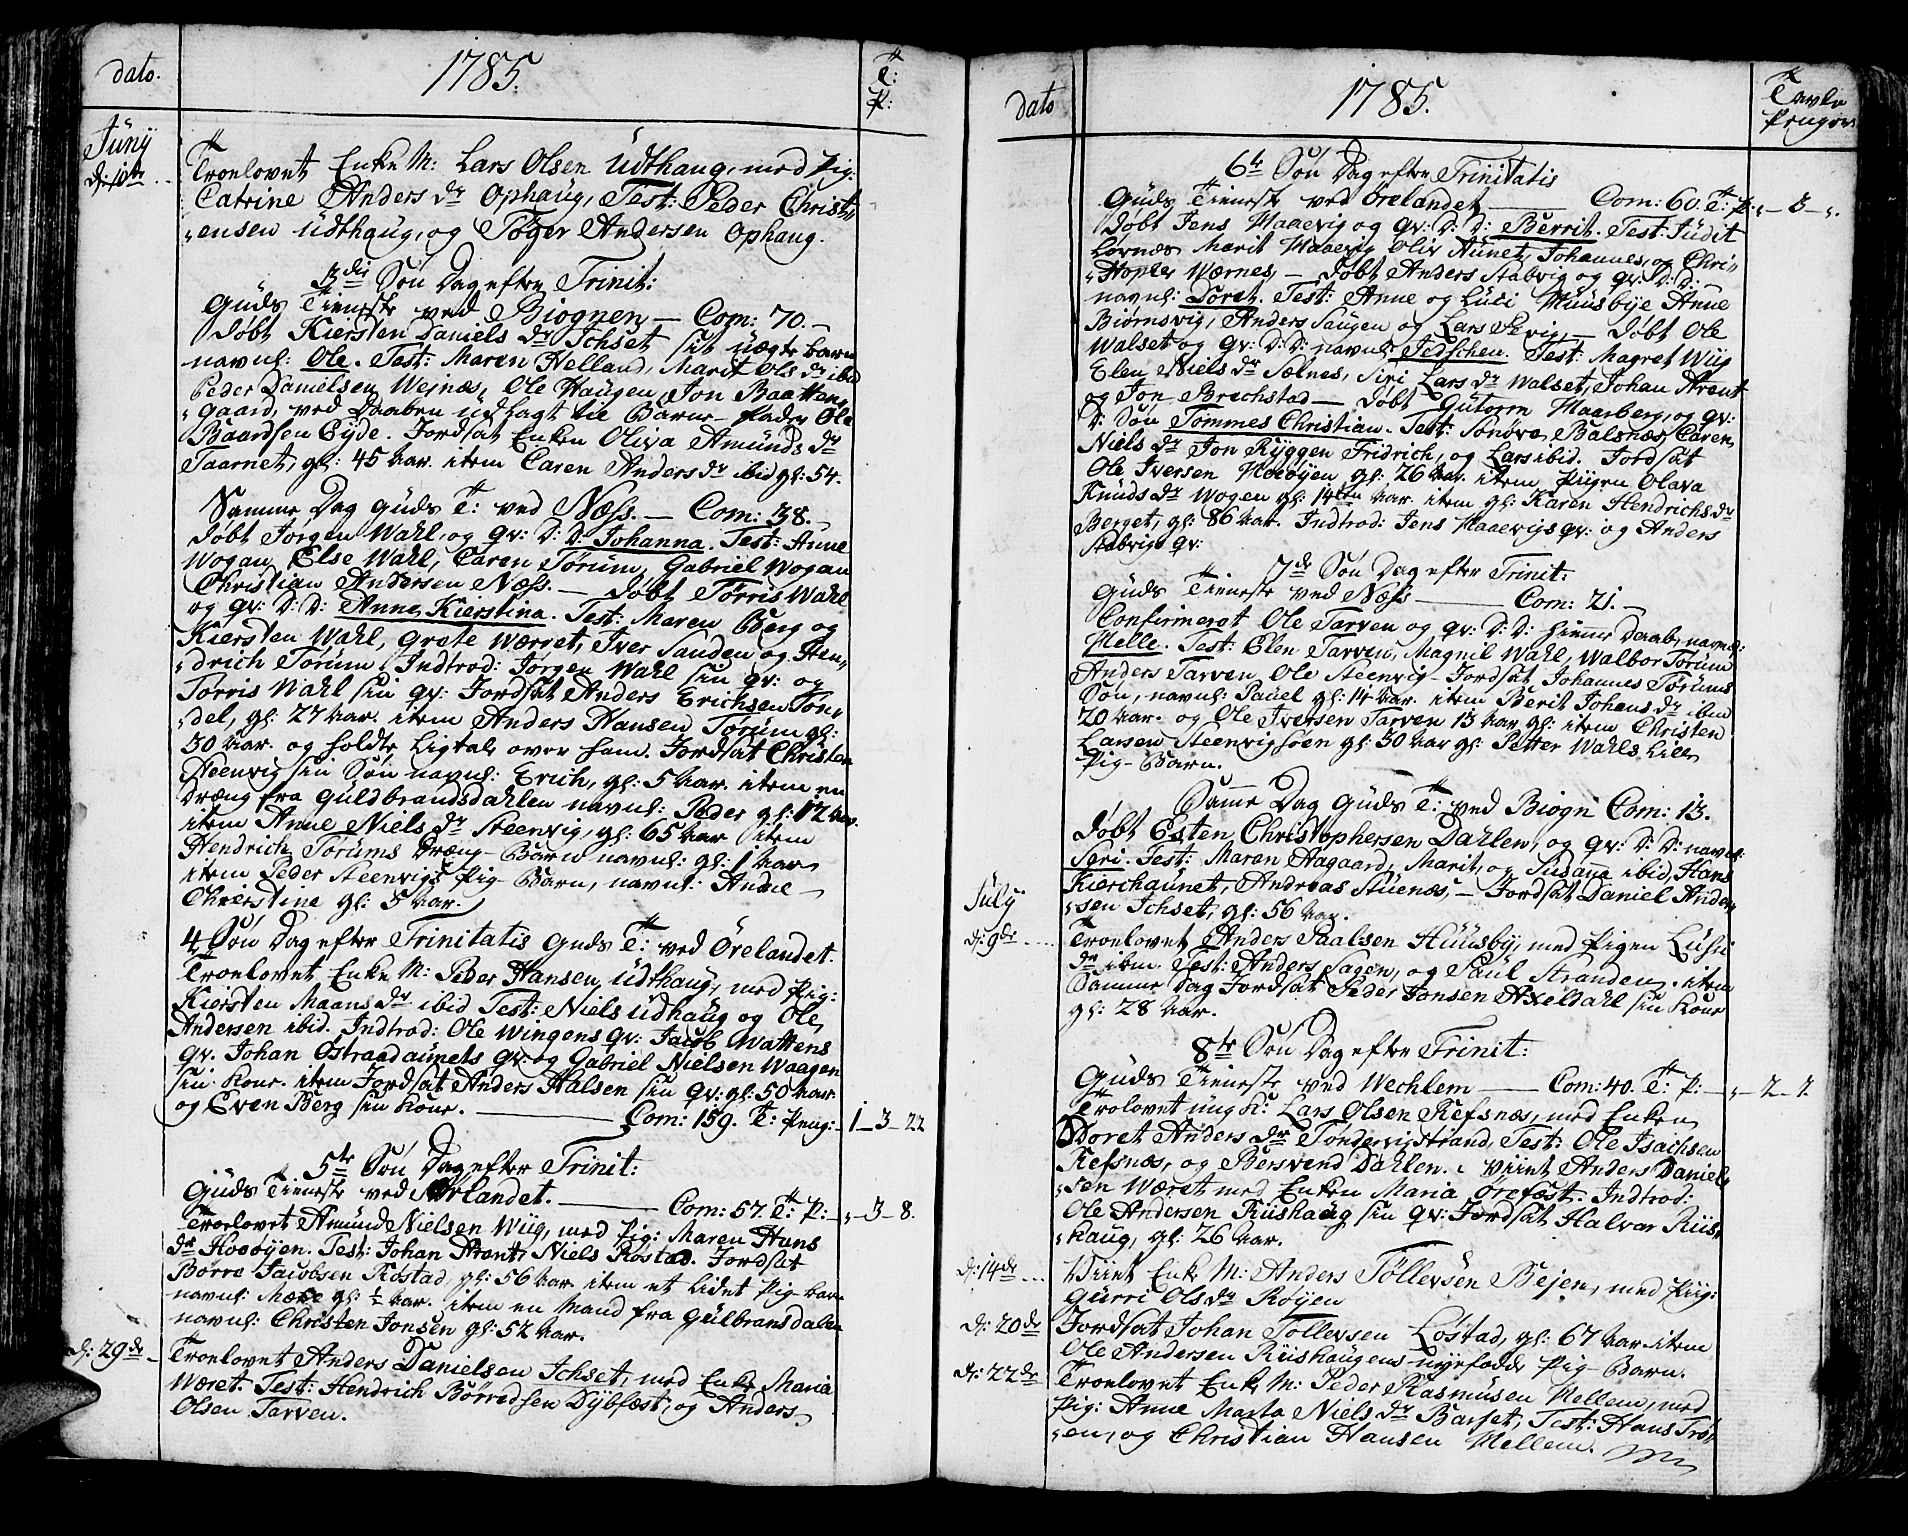 dato.
1785.
T:
P:
Juny
d: 10de
Troelovet Enke M: Lars Olsen Udthaug, med Pig:
Catrine Anders dr Ophaug, Test: Peder Christ,
,ensen Udthaug, og Tøger Andersen Ophaug.
3die Søn Dag efter Trinit:
Guds Tieneste ved Biognen — Com: 70. —
Døbt Kiersten Daniels dr Ichset sit uægte barn
navnl: Ole. Test: Maren Helland, Marit Ols dr ibid
Peder Danielsen Wejnæs, Ole Haugen, Jon Baattens
gaard, ved Daaben udlagt til Barne-fader Ole
Baardsen Eyde. Jordsat Enken Oliva Amunds dr
Taarnet, gl: 45 Aar. item Caren Anders dr ibid gl: 54.
Samme Dag Guds T: ved Næss. — Com: 38. —
Døbt Jørgen Wahl, og qv: D: D: Johanna. Test: Anne
Wogan, Else Wahl, Caren Tørum, Gabriel Wogan
Christian Andersen Næss. — Døbt Torris Wahl
og qv: D: D: Anne Kierstina. Test: Maren Berg og
Kiersten Wahl, Grete Wærget, Iver Sanden og Hen,
,drich Tørum. Indtrod: Jørgen Wahl sin qv: og
Torris Wahl sin qv: Jordsat Anders Erichsen Tøn,
,del, gl: 27 Aar. item Anders Hansen Tørum gl:
30 Aar. og holdte Ligtale over ham. Jordsat Christen
Steenvig sin Søn navnl: Erich, gl: 5 Aar. item en
Dræng fra Guldbrandsdahlen navnl: Peder gl: 12 Aar.
item Anne Niels dr Steenvig, gl: 65 Aar item
Hendrich Torums Dræng-Barn navnl: gl: 1 Aar
item Peder Steenvigs Pig-Barn, navnl: Anne
Chrierstine gl: 5 Aar.
4 Søn Dag efter Trinitatis Guds T: ved Ørelandet.
Troelovet Enke M: Peder Hansen Udthaug, med Pig:
Kiersten Maans dr ibid Test: Niels Udhaug og Ole
Andersen ibid. Indtrod: Ole Wingens qv: Jacob Wattens
qv. Johan Ostraadaunets qv og Gabriel Nielsen Waagen
sin Kone. item Jordsat Anders Halsen sin qv: gl: 50 Aar.
og Even Berg sin Kone. — Com: 159. T: Peng: 1_3_22
5te Søn Dag efter Trinit:
Guds Tieneste ved Ørlandet. — Com: 57. T: P: ,_3_8.
Troelovet Amund Nielsen Wiig, med Pig: Maren Hans
dr Hooøyen. Test: Johan Arent, Niels Rostad. Jordsat
Børre Jacobsen Rostad, gl: 56 Aar item et lidet Pig barn
navnl: gl: ½ Aar. item en Mand fra Gulbransdalen
navnl: Christen Jonsen gl: 52 Aar.
d: 29de
Troelovet Anders Danielsen Ichset, med Enke Maria
Wæret. Test: Hendrich Børredsen Dybfest, og Anders
Olsen Tarven.
dato
1785.
Tavle
Penger
6te Søn Dag efter Trinitatis
Guds Tieneste ved Ørelandet — Com: 60. T: P: ,_3_,.
Døbt Jens Haaevig og qv: D: D: Berrit. Test: Judit
Lernæs Marit Haaevig Oliv Aunet, Johannes, og Chri,
,stopher Wærnes, — Døbt Anders Stabvig og qv: D: D:
navnl: Soret. Test: Anne og Luci Huusbye Anne
Biørnsvig, Anders Saugen og Lars Sevig, — Døbt Ole
Walset og qv: D: D: navnl: Jedschen. Test: Magret Wiig
Elen Niels dr Sælnes, Siri Lars dr Walset, Johan Arent
og Jon Brechstad — Døbt Gutorm Haarberg, og qv:
D: Søn Tommes Christian. Test: Sonøve Balsnæs, Caren
Niels dr Jon Ryggen Fridrich, og Lars ibid. Jordsat
Ole Iversen Hooøyen gl: 26 Aar. item Pigen Olava
Knuds dr Wogen gl: 14ten Aar. item gl: Karen Hendrichs dr
Berget, gl: 86 Aar. Indtrod: Jens Haaevigs qv: og Anders
Stabvigs qv:
7de Søn Dag efter Trinit:
Guds Tieneste ved Næss — Com: 21. —
Confirmerot Ole Tarven og qv: D: D: hieme Daab, navnl:
Helle. Test: Elen Tarven, Magnil Wahl, Walbor Torum
Anders Tarven, Ole Steenvig — Jordsat Johannes Torums
Søn, navnl: Pauel gl: 14 Aar. item Berit Johans dr ibm
20 Aar. og Ole Iversen Tarven 13 Aar gl: item Christen
Larsen Steenvigsøen gl: 30 Aar gl: Petter Wahls Lille
Pig-Barn.
Same Dag Guds T: ved Biogn Com: 13.
Døbt Esten Christophersen Dahlen, og qv: D: D: navnl:
Seri. Test: Maren Aagaard, Marit, og Susana ibid, Hans
Kierchaunet, Andreas Stuenæs, — Jordsat Daniel Ander,
,sen Ichset, gl: 56 Aar.
July
d: 9de
Troelovet Anders Paalsen Huusby, med Pigen Luhsi
dr ibm. Test: Anders Sagen, og Paul Stranden. item
Samme Dag Jordsat Peder Jonsen Axeldahl sin Kone
gl: 28 Aar.
8te Søn Dag efter Trinit:
Guds Tieneste ved Wechlem — Com: 40. T: P: ,_2_2.
Trolovet ung K: Lars Olsen Refsnæs, med Enken
Doret Anders dr Tøndervigstrand, Test: Ole Isachsen
Refsnæs, og Bersvend Dahlen. Viiet Anders Daniel,
,sen Wæret med Enken Maria Ørefæst. Indtrod:
Ole Andersen Riishaug sin qv: Jordsat Halvar Riis,
,haug, gl: 26 Aar.
d: 14de
Viiet Enke M: Anders Tøllevsen Bejen, med Piig:
Gurri Ols dr Røyen
d: 20de
Jordsat Johan Tollevsen Lostad, gl: 67 Aar item
Ole Andersen Riishaugens nyefødde Pig-Barn.
d: 22de
Troelovet Enke M: Peder Rasmusen Hellem, med
Pig: Anne Marta Niels dr Barset, Test: Hans Trø,
,en, og Christian Hansen Hellem.